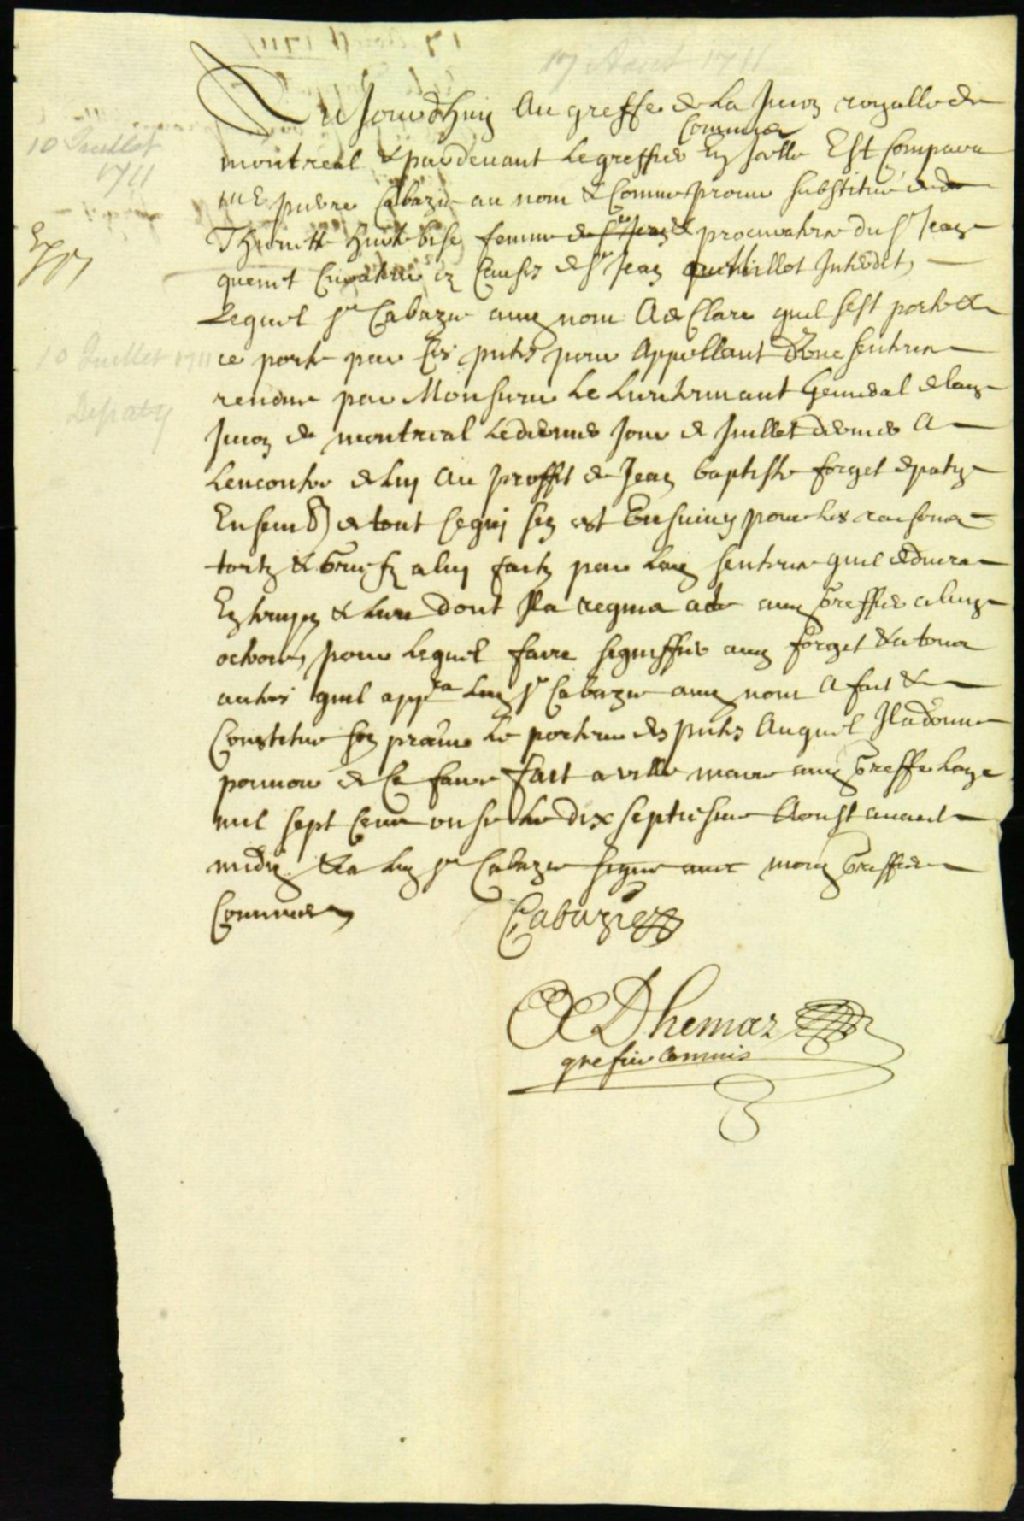 17 Aoust 1711
Ce Jourdhuy Au greffe de La Juron royalle de
montreal & pardevant Le greffier Commis En Icelle Est Comparu
pierre Cabazie au nom & Comme procur substitué de
Thiennette hurtebise femme & procuratrice du Sr Jean
quenet Curatrice de Sr Jean Interdit
Lequel Sr Cabazie aud nom A de Clare quil sest porte &
ce porte par Ces pntes pour Appellant dune sentence
rendue par Monsieur Le Lieutenant General de lad
Juron de montreal Le dixieme Jour de Juillet dernier A
Lencontre de Luy Au proffit de Jean baptiste forget depaty
Ensemb de tout Ce quy sen est Ensuivy pour Les raisons
tortz & Griefz a luy faitz par Lad sentence quil deduira
En temps & Lieu Dont Il a requis acte aud Greffier
octroié, pour Lequel faire signiffier aud forget & a tous
autres quil appra Led Sr Cabazie aud nom A fait &
Constitué son procur Le porteur des pntes Auquel Il a donné
pouvoir de Ce faire fait a ville marie aud Greffe Lan
mil sept Cent onze Le dix septiesme Aoust avant
midy & a Led Sr Cabazie signé avec moud Greffier
Commis
Cabazie
ADhemar
grefier commis
10 Juillet
1711
Exp
10 Juillet 1711
Depaty